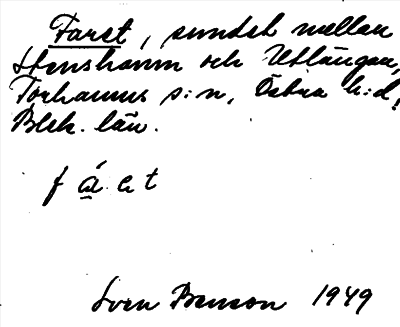 Faret, sundet mellan
Stenshamn och Utlängan,
Torhamns s:n, Östra h:d,
Blek. län.
Sven Benson 1949